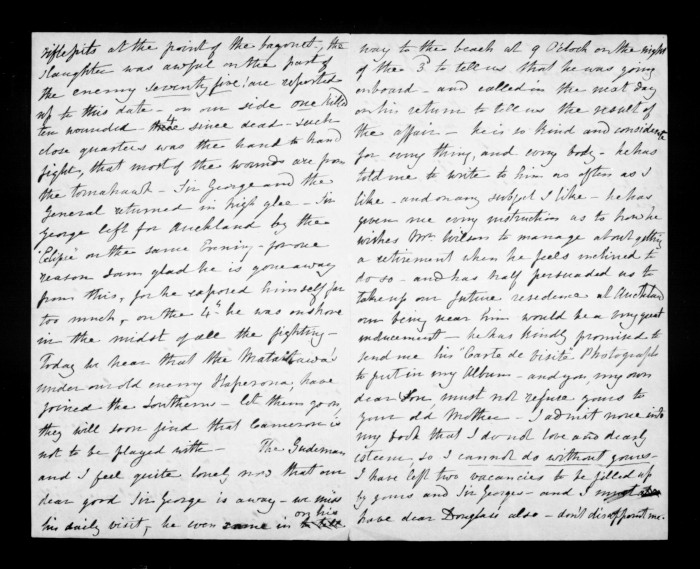 riflepits at the point of the bayonet; the
slaughter was awful on the part of
the enemy seventy five! are reported
up to this date - on our side one killed
ten wounded 4 since dead - such
close quarters was the hand to hand
fight, that most of the wounds are from
the tomahawk - Sir George and the
General returned in high glee - Sir
George left for Auckland by the
'Eclipse' on the same Evening - for one
reason I am glad he is gone away
from this, for he exposed himself far
too much, on the 4th he was on shore
in the midst of all the fighting -
Today we hear that the
under our old enemy have
joined the Southerns - let them go on,
they will soon find that Cameron is
not to be played with - The Gudeman
and I feel quite lonely now that our
dear good Sir George is away - we miss
his daily visit, he even came in on his
way to the beach at 9 O'clock on the night
of the 3d to tell us that he was going
onboard - and called in the next day
on his return to tell us the result of
the affair - he is so kind and considerate
for every thing, and every body - he has
told me to write to him as often as I
like - and on any subject I like - he has
given me every instruction as to how he
wishes Mr. Wilson to manage about getting
a retirement when he feels inclined to
do so - and has half persuaded us to
take up our future residence at Auckland
our being near him would be a very great
inducement - he has kindly promised to
send me his Carte de Visite Photograph
to put in my Album - and you, my own
dear Son must not refuse yours to
your old Mother - I admit none into
my book that I do not love and dearly
esteem, so I cannot do without yours -
I have left two vacancies to be filled up
by yours and Sir Georges - and I must
have dear Douglass' also - don't disappoint me.